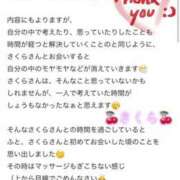 THANK
YOU
内容にもよりますが、
自分の中で考えたり、思っていりしたことも
時間が経つと解決していくことのと同じように、
さくらさんとお会いすると
自分の中のモヤモヤなどが消えていきます
さくらさんは、そんなこと思っていないかも
しれませんが、一人で考えていた時間が
しょうもなかったなぁと思えます
さくら
そんなさくらさんとの時間を過ごしていると
ふと、さくらさんと初めてお会いした頃のことを
思い出しました
その時はマッサージもぎこちない感じ
(上から目線でごめんなさい